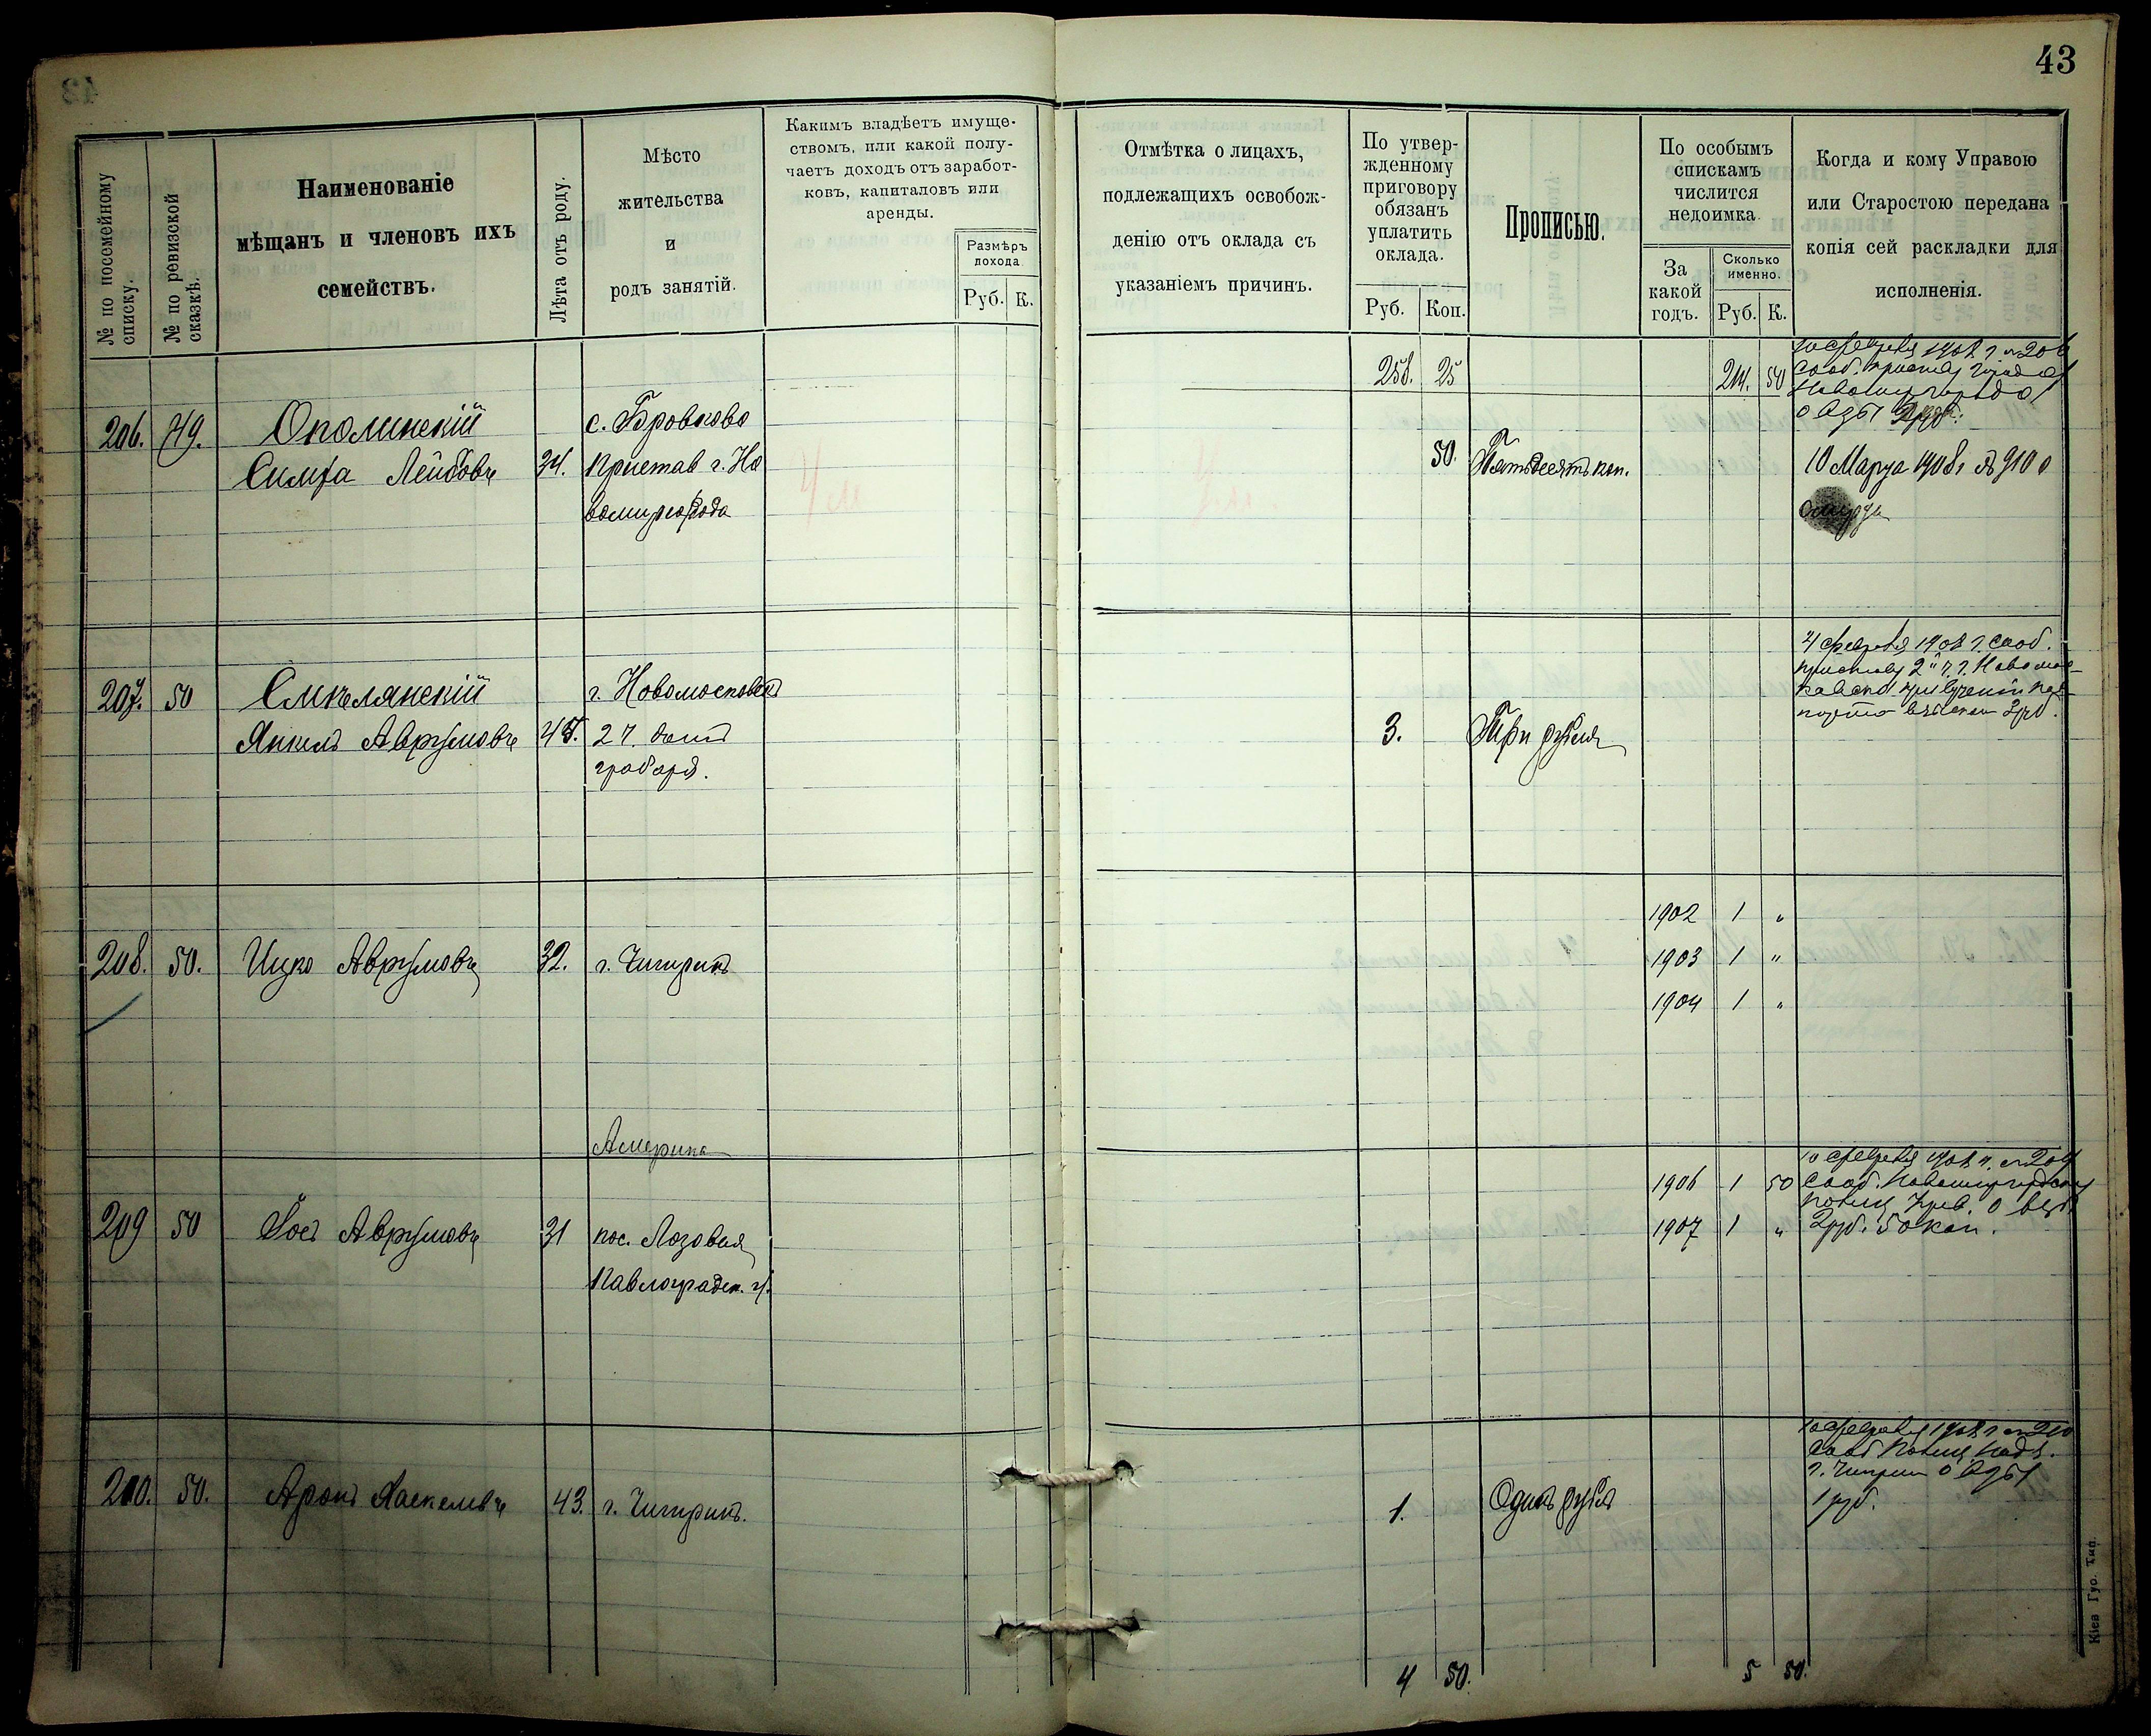 43
№ по посемейному списку.
№ по ревизской сказкѣ.
Наименованіе
мѣщанъ и членовъ ихъ
семействъ.
Лѣта отъ роду.
Мѣсто
жительства
и
родъ занятій.
Какимъ владѣетъ имуще-
ствомъ, или какой полу-
чаетъ доходъ отъ заработ-
ковъ, капиталовъ или
аренды.
Размѣръ
дохода
Руб. К.
Отмѣтка о лицахъ,
подлежащихъ освобож-
денію отъ оклада съ
указаніемъ причинъ.
По утвер-
жденному
приговору
обязанъ
уплатить
оклада.
Руб. Коп.
Прописью.
По особымъ
спискамъ
числится
недоимка.
За
какой
годъ.
Сколько
именно.
Руб. К.
Когда и кому Управою
или Старостою передана
копія сей раскладки для
исполненія.
258. 25 214. 50
206. 49. Ополинскій с. Бровково
Симха Лейбовъ 34. Пристав г. Но
вомиргорода
50. Пятьдесятъ коп.
10 Марта 1908 г № 910
207. 50 Смелянскій г. Новомосковскъ
Янкель Аврумовъ 45. 2 ч. домъ
грабаря.
3. Три рубля
4 февраля 1908 г. сооб.
208. 50. Ицко Аврумовъ 32. г. Чигиринъ
1902 1 "
1903 1 "
1904 1 "
Америка
209 50 Іосъ Аврумовъ 31 пос. Лозовая
Павлоградск. у.
1906 1 50
1907 1 "
10 февраля 1908 г.
2 руб. 50 коп.
210. 50. Аронъ Хаскелевъ 43. г. Чигиринъ.
1. Одинъ рубль
10 февраля 1908 г № 210
г. Чигирин о
1 руб.
4 50. 5 50.
Кіев Губ. Тип.